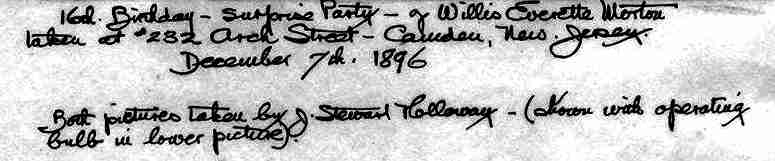 16th. Birthday - Surprise Party - of Willis Everette Morton
taken at #232 Arch Street - Camden, New. Jersey.
December 7th. 1896
Both pictures taken by J. Stewart Holloway - (shown with operating
bulb in lower picture).